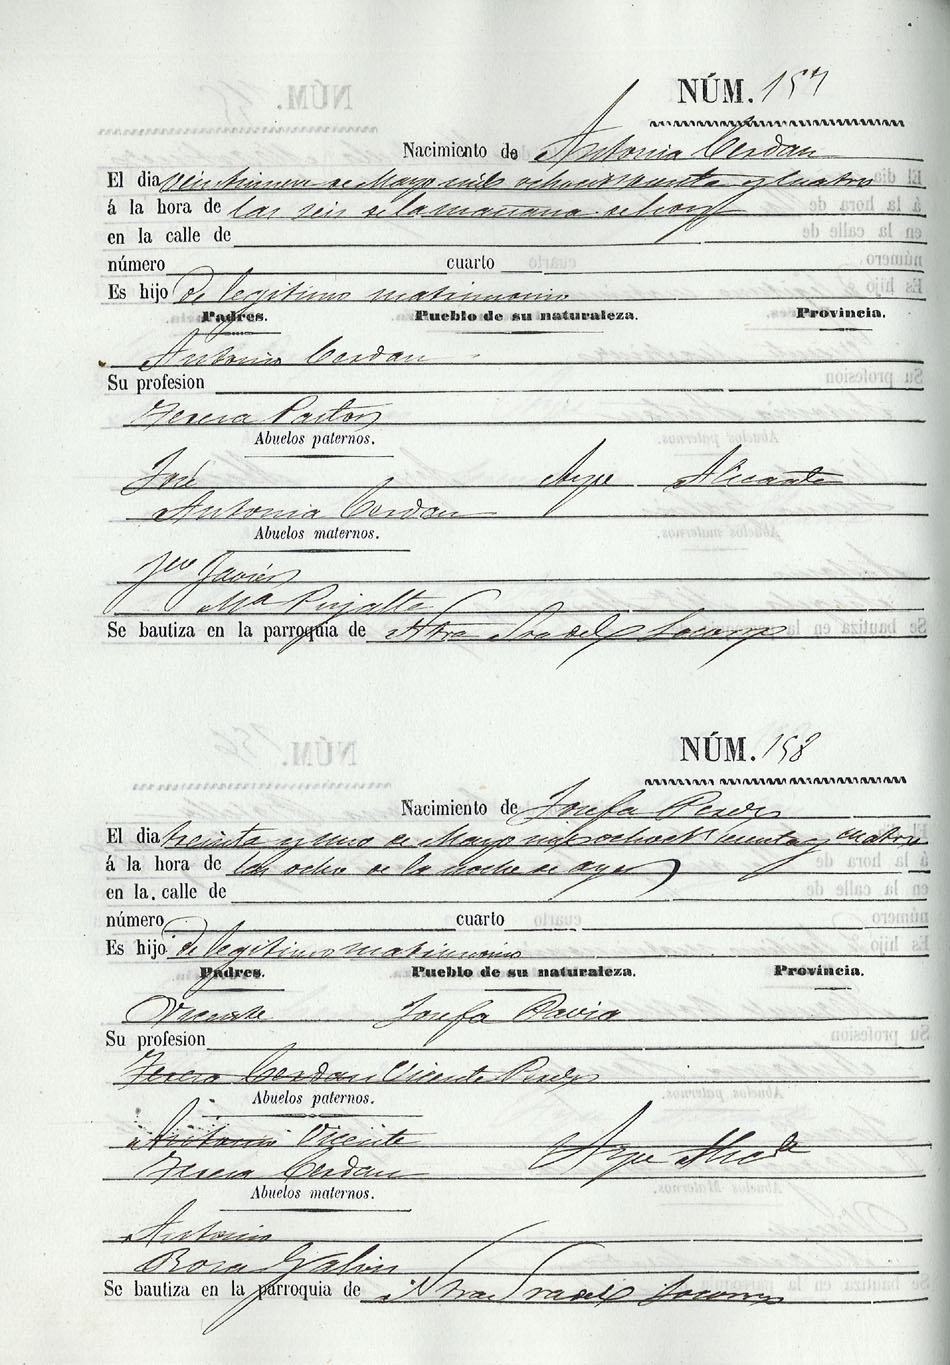 NÚM. 157
Nacimiento de Antonia Cerdan
El dia de Mayo mil y cuatro
á la hora de las seis de la mañana de hoy
en la calle de
número cuarto
Es hijo de legitimo matrimonio
Padres. Pueblo de su naturaleza. Provincia.
Antonio Cerdan
Su profesion
Teresa Pastor
Abuelos paternos.
José Aspe Alicante
Antonia Cerdan
Abuelos maternos.
Javier
Mª Pujalte
Se bautiza en la parroquia de Ntra Sra del Socorro
NÚM. 158
Nacimiento de Josefa Perez
El dia treinta y uno de Mayo mil ochocts sesenta y cuatro
á la hora de las ocho de la noche de ayer
en la calle de
número cuarto
Es hijo de legitimo matrimonio
Padres. Pueblo de su naturaleza. Provincia.
Vicente Josefa Pavia
Su profesion
Teresa Cerdan Vicente Perez
Abuelos paternos.
Antonio Vicente Aspe Alicte
Teresa Cerdan
Abuelos maternos.
Antonio
Rosa Galvin
Se bautiza en la parroquia de Ntra Sra del Socorro